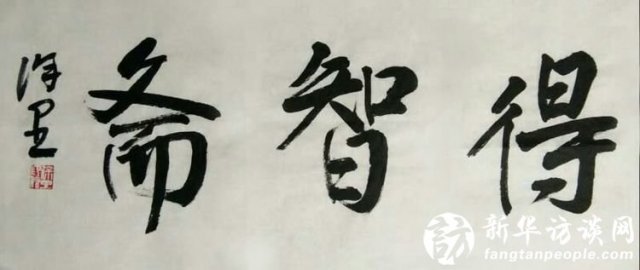 得智斋
新华访谈网
fangtanpeople.com